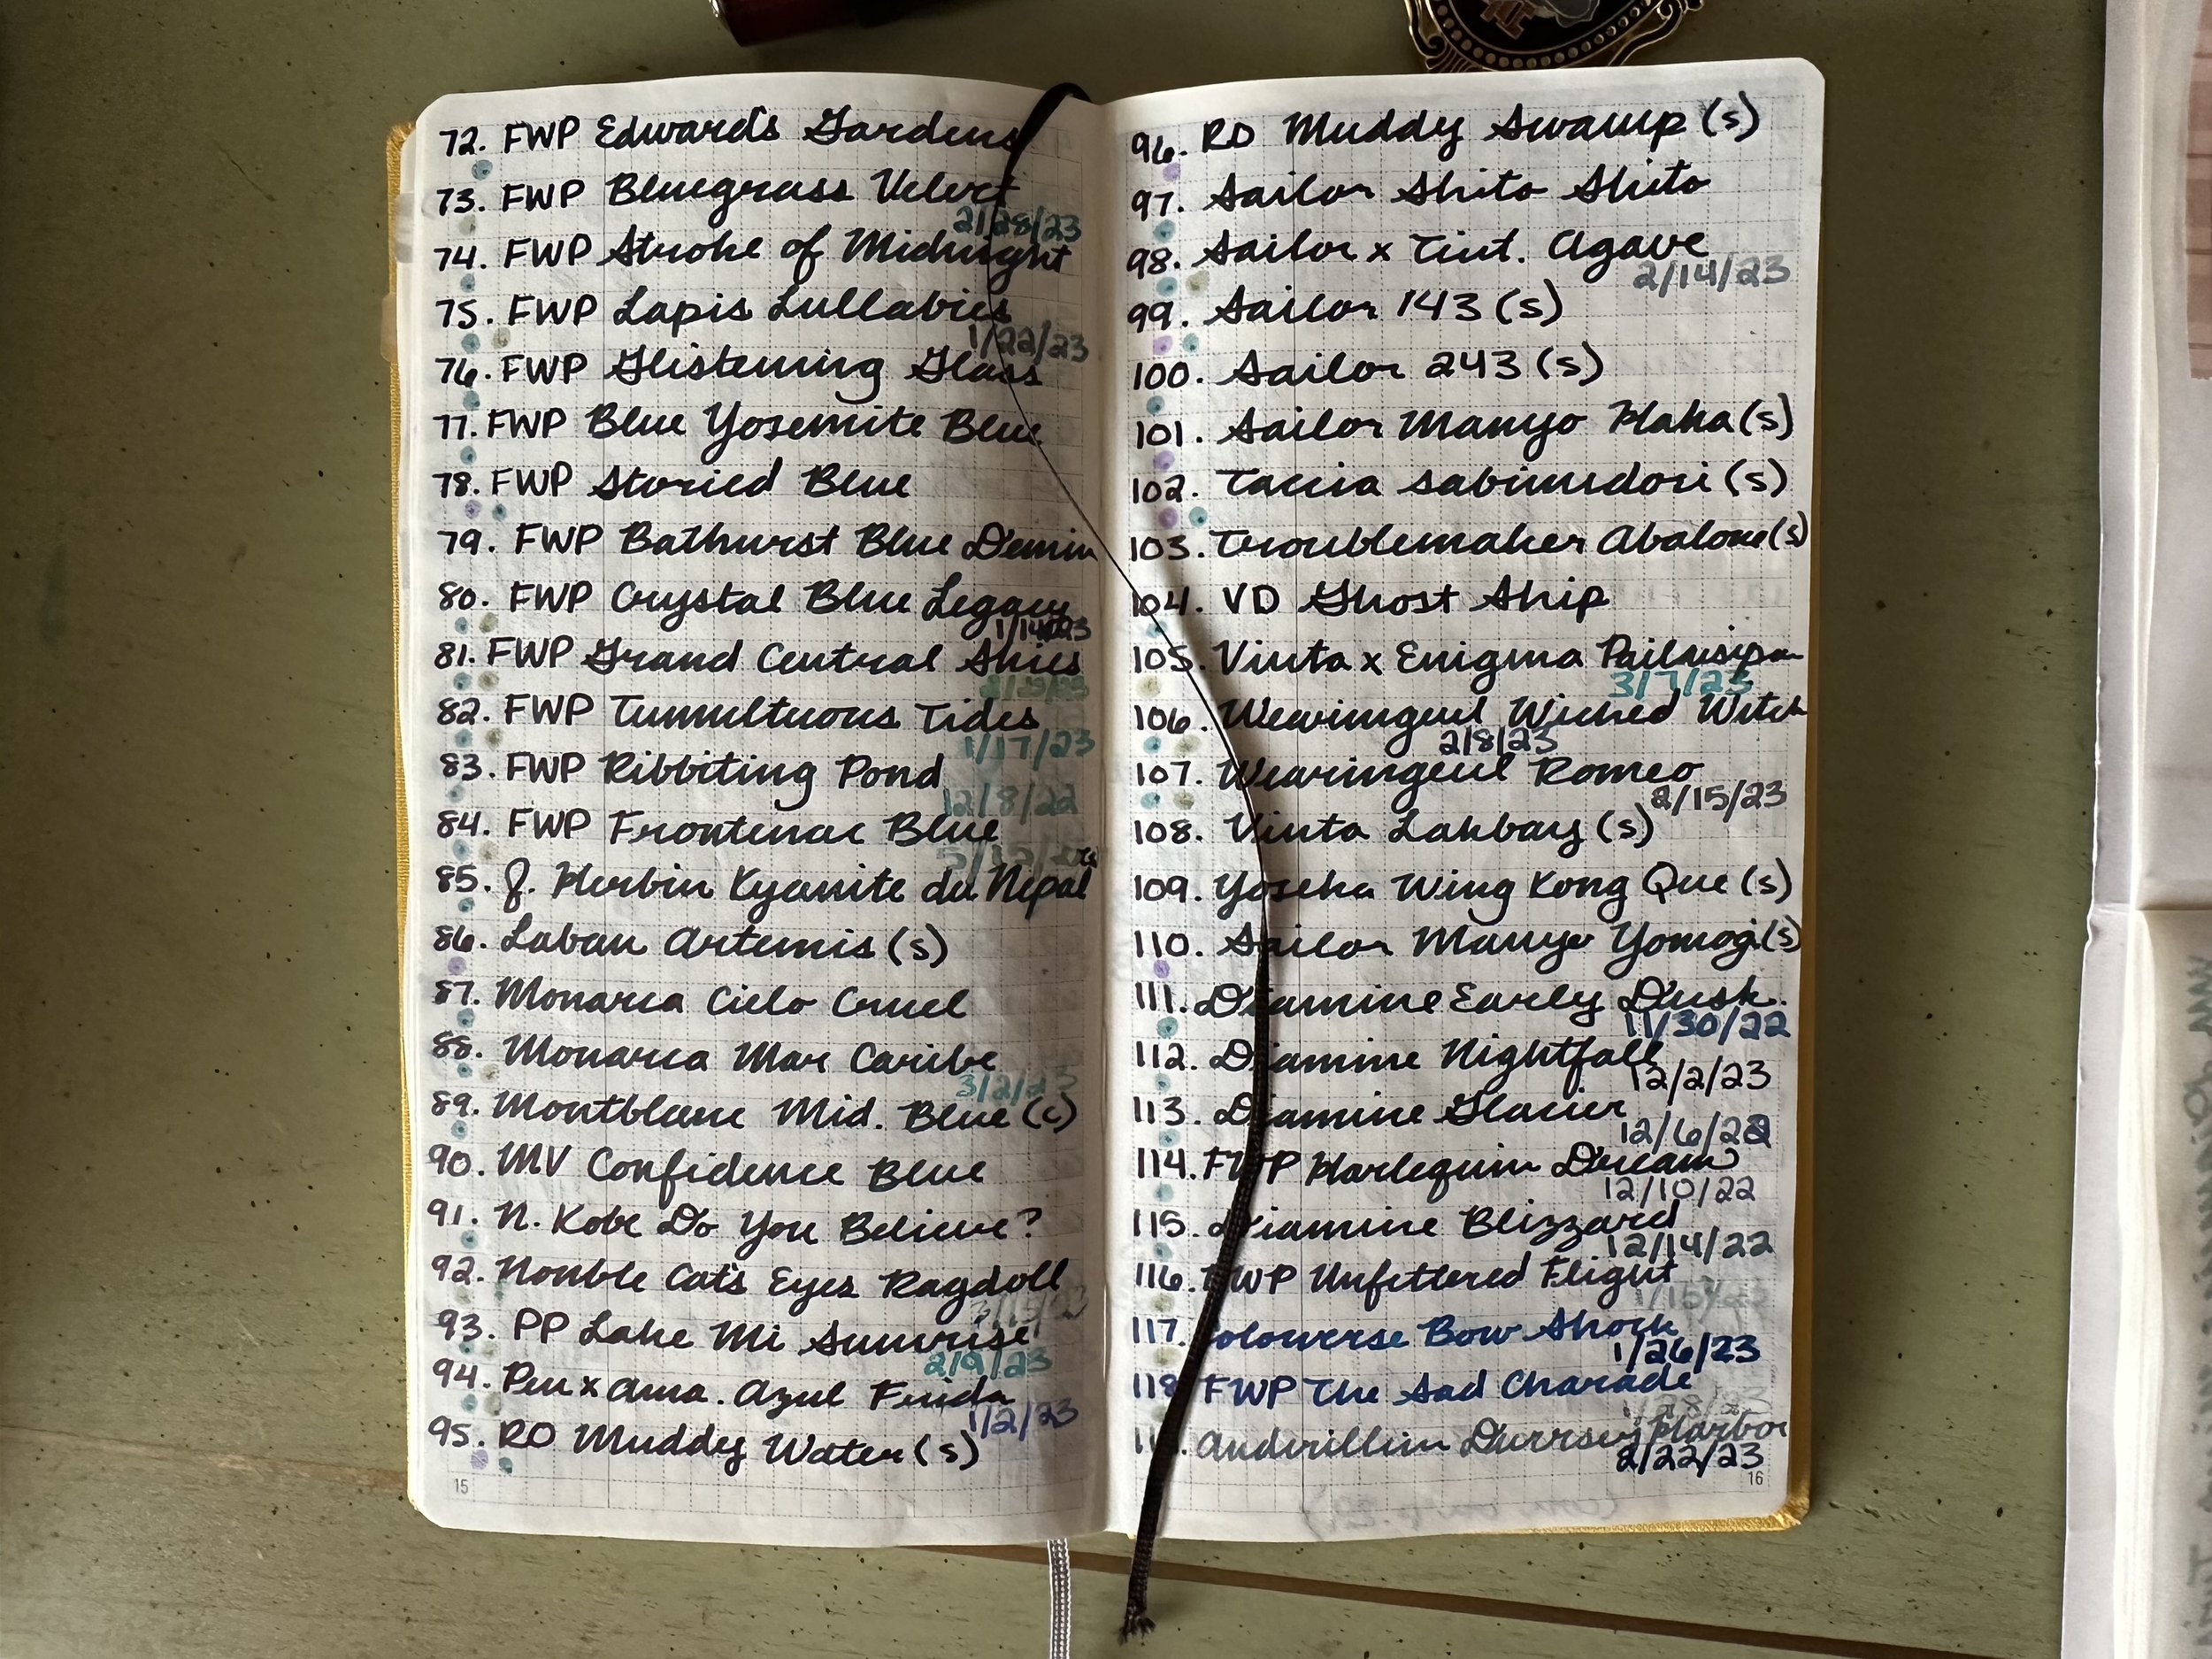 72. FWP Edwards Gardens
73. FWP Bluegrass Velvet
2/28/23
74. FWP Stroke of Midnight
75. FWP Lapis Lullabies
1/22/23
76. FWP Glistening Glass
77. FWP Blue Yosemite Blue
78. FWP Storied Blue
79. FWP Bathurst Blue Demin
80. FWP Crystal Blue Legacy
1/14/23
81. FWP Grand Central Skies
82. FWP Tumultuous Tides
1/17/23
83. FWP Ribbiting Pond
12/8/22
84. FWP Frontenac Blue
85. J. Herbin Kyanite du Nepal
86. Laban Artemis (s)
87. Monarca Cielo Cruel
88. Monarca Mar Caribe
3/2/23
89. Montblanc Mid. Blue (c)
90. MV Confidence Blue
91. N. Kobe Do You Believe?
92. Nonble Cat's Eyes Ragdoll
3/15/23
93. PP Lake Mi Sunrise
2/9/23
94. Pen x Ama. Azul Frida
1/2/23
95. RO Muddy Water (s)
15
96. RO Muddy Swamp (s)
97. Sailor Shito Shito
98. Sailor x Tint. Agave
2/14/23
99. Sailor 143 (s)
100. Sailor 243 (s)
101. Sailor Manyo Haha (s)
102. Taccia Sabimidori (s)
103. Troublemaker Abalone (s)
104. VD Ghost Ship
105. Vinta x Enigma
3/7/23
106. Wearingeul Wicked Witch
2/8/23
107. Wearingeul Romeo
2/15/23
108. Vinta Lakbay (s)
109. Yoseka Wing Kong Que (s)
110. Sailor Manyo Yomogi (s)
111. Diamine Early Dusk
11/30/22
112. Diamine Nightfall
12/2/23
113. Diamine Glacier
12/6/22
114. FWP Harlequin Dream
12/10/22
115. Diamine Blizzard
12/14/22
116. FWP Unfettered Flight
1/15/23
117. Colorverse Bow Shock
1/26/23
118 FWP The Sad Charade
Anderillium Harbor
2/22/23
16